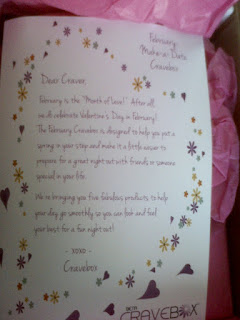 February:
Make-a-Date
Cravebox
Dear Craver,
February is the "Month of Love"! After all,
we do celebrate Valentine's Day in February!
The February Cravebox is designed to help you put a
spring in your step and make it a little easier to
prepare for a great night out with friends or someone
special in your life.
We're bringing you five fabulous products to help
your day go smoothly so you can look and feel
your best for a fun night out!
- xoxo -
Cravebox
CRAVEBOX